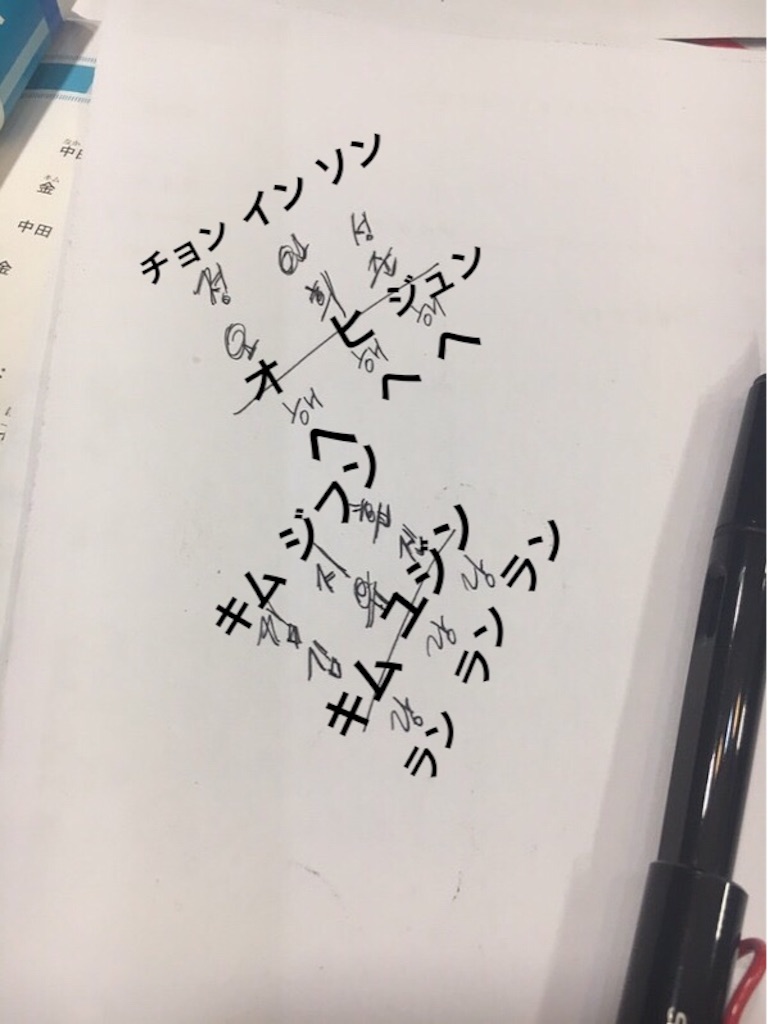 中
金
中田
金
チョン イン ソン
정 인 성
オ ヒ ジュン
오 희 준
해 해 해
ヘ ヘ ヘ
キム ジフン
김 지 훈
キム ユジン
김
랑 랑 랑
ラン ラン ラン